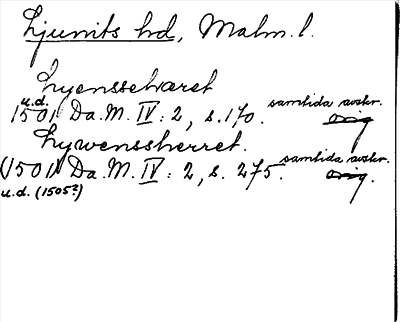 Ljunits hd, Malm. l.
Lyensseheret
u.d. 1501 Da. M. IV: 2, s. 170. samtida avskr. orig
Lywenssherret.
(1501) Da. M. IV: 2, s. 275. samtida avskr. orig.
u.d. (1505?)